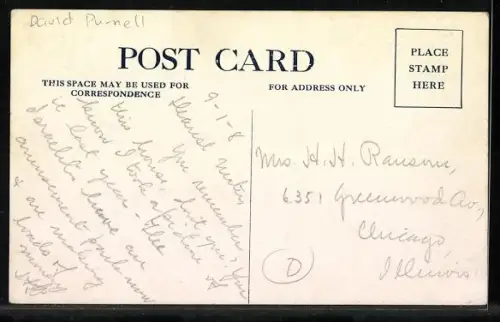 David Purnell
POST CARD
THIS SPACE MAY BE USED FOR
CORRESPONDENCE
FOR ADDRESS ONLY
PLACE
STAMP
HERE
9-1-8
Dearest
You remember
this house, don't you? You
know I took a picture of
it last year - The
Israelites have an
amusement park now
& are making
loads of
money
Mrs. H. H. Ransom,
6351 Greenwood Av.,
Chicago,
Illinois
D